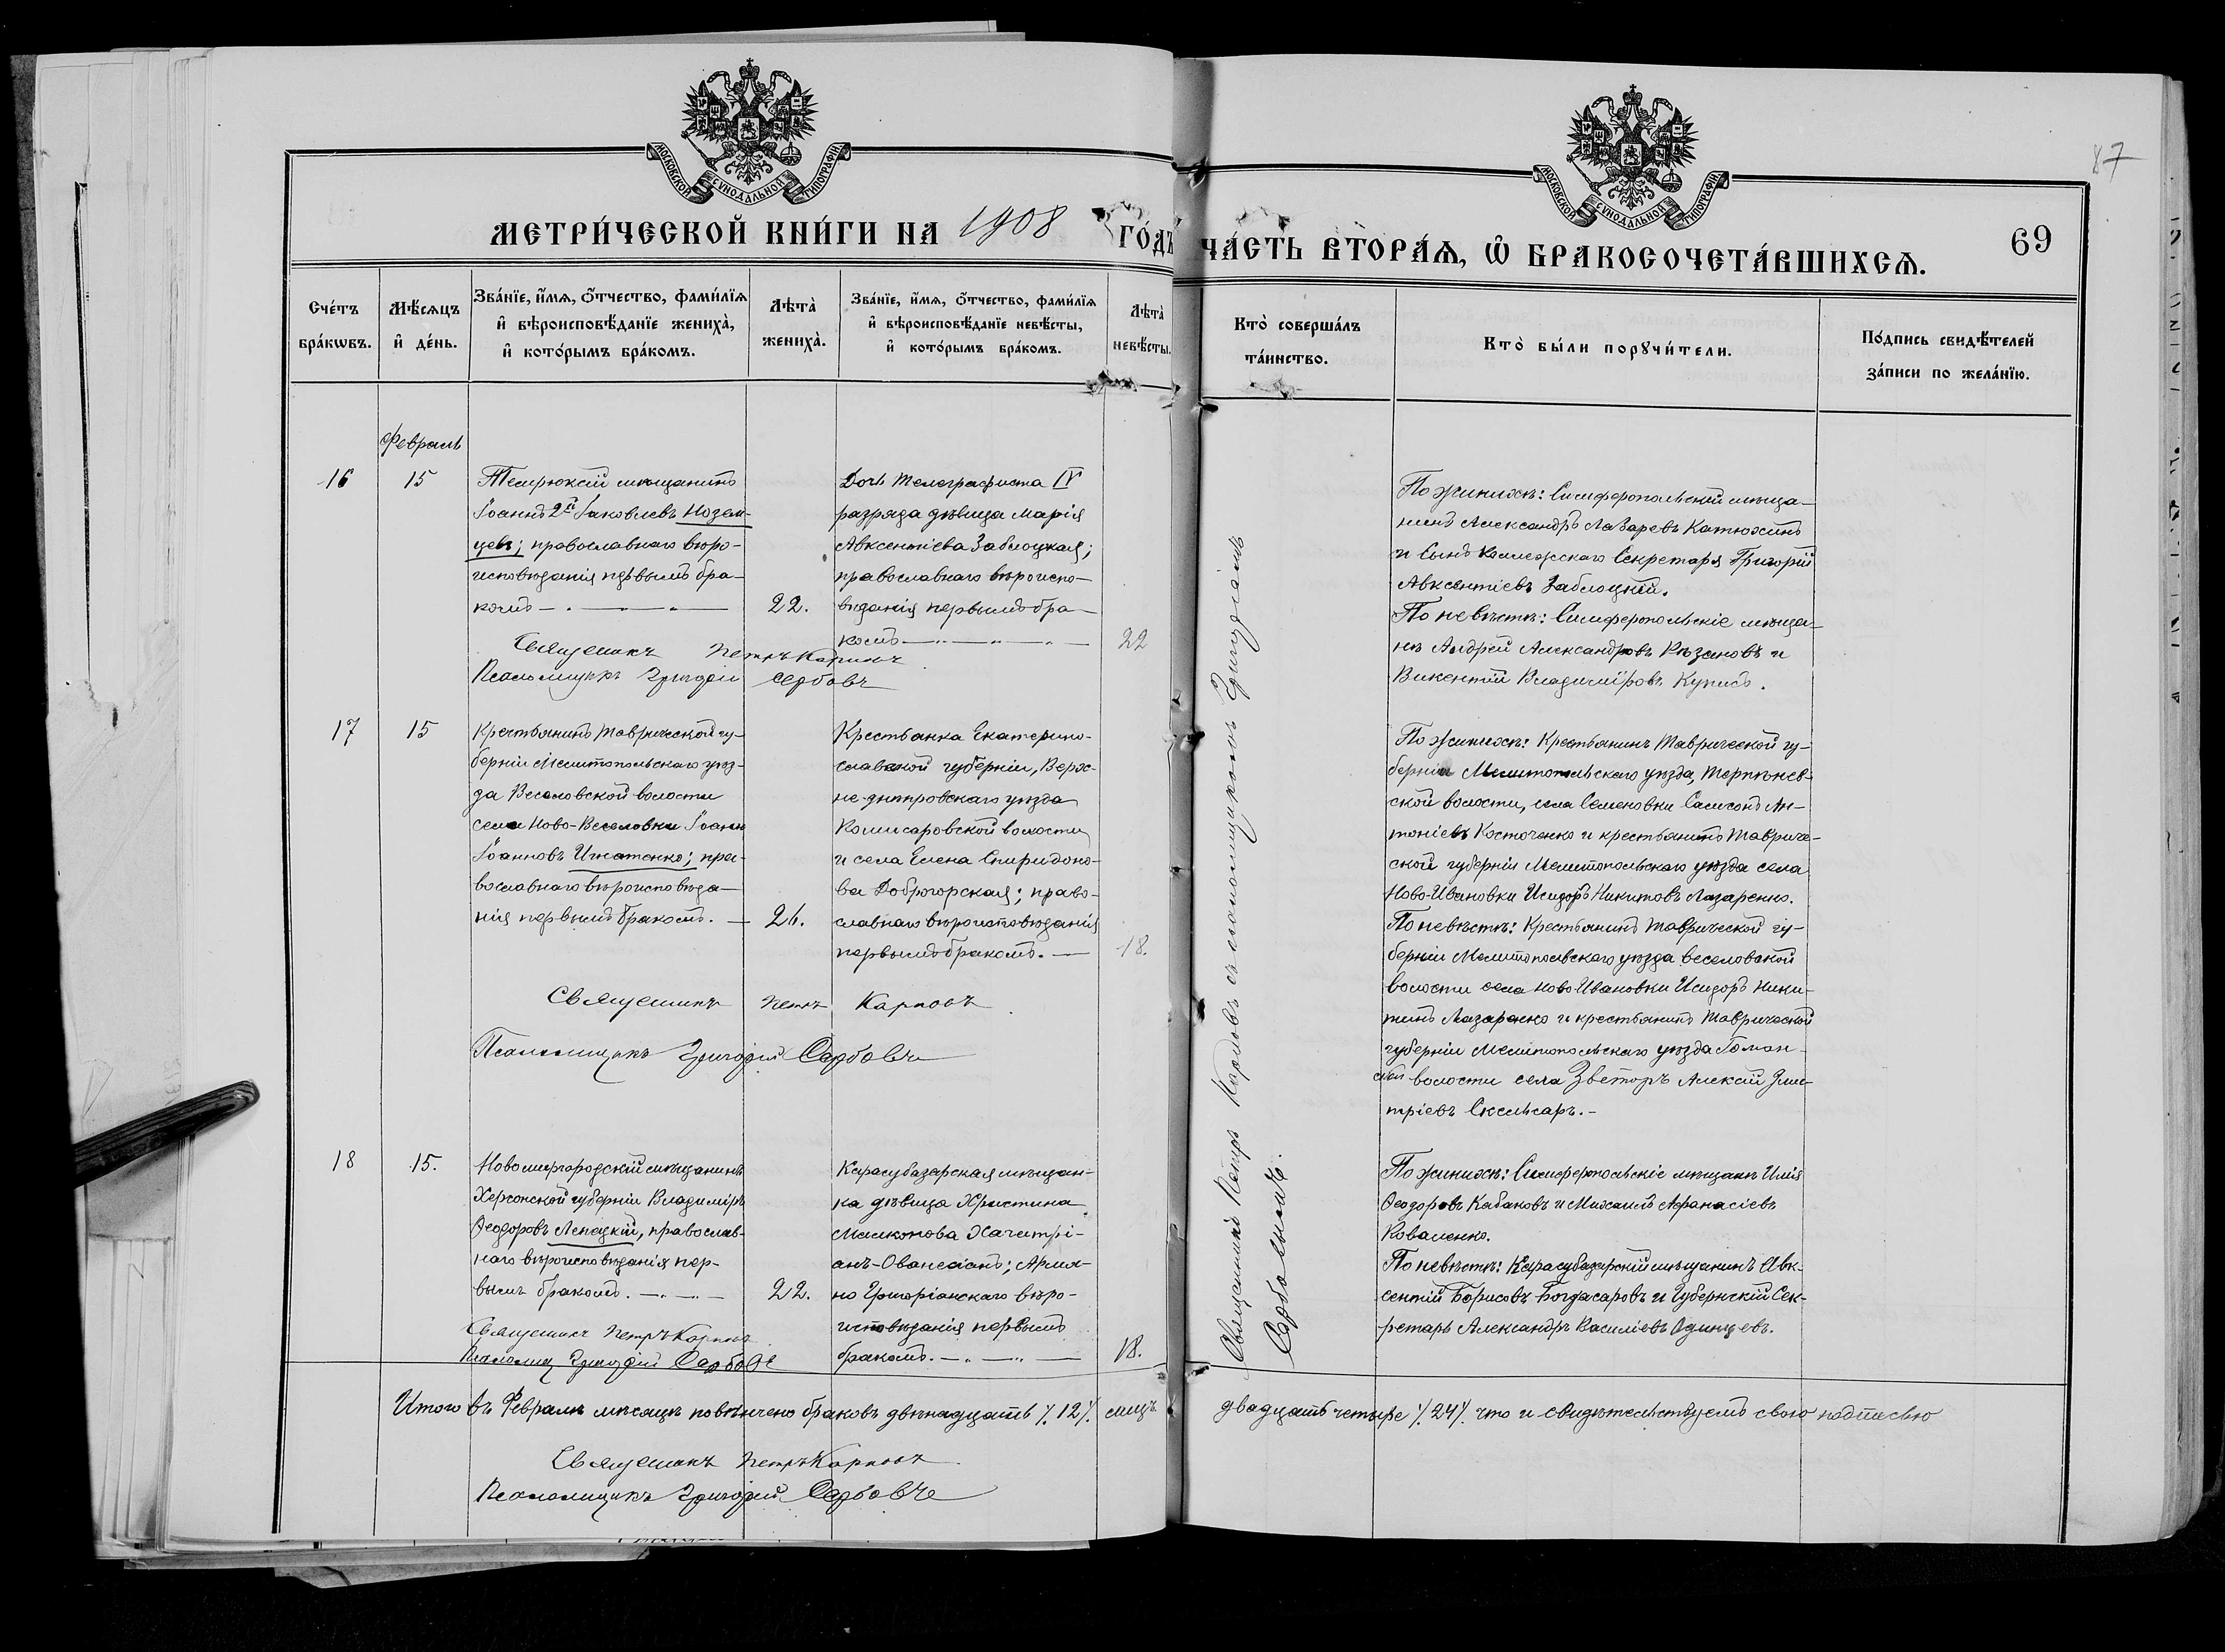 МОСКОВСКОЙ СѴНОДАЛЬНОЙ ТИПОГРАФІИ
МОСКОВСКОЙ СѴНОДАЛЬНОЙ ТИПОГРАФІИ
87
МЕТРИ́ЧЕСКОЙ КНИ́ГИ НА 1908 ГО́ДЪ
ЧА́СТЬ ВТОРА́Ѧ, Ѡ҆ БРАКОСОЧЕТА́ВШИХСѦ.
69
Сче́тъ
бра́кѡвъ.
Мѣ́сѧцъ
и҆ де́нь.
Зва́нїе, и҆́мѧ, ѻ҆́тчество, фами́лїѧ
и҆ вѣроисповѣ́данїе жениха̀,
и҆ кото́рымъ бра́комъ.
Лѣта̀
жениха̀.
Зва́нїе, и҆́мѧ, ѻ҆́тчество, фами́лїѧ
и҆ вѣроисповѣ́данїе невѣ́сты,
и҆ кото́рымъ бра́комъ.
Лѣта̀
невѣ́сты.
Кто̀ соверша́лъ
та́инство.
Кто̀ бы́ли порꙋчи́тели.
По́дпись свидѣ́телей
за́писи по жела́нїю.
Февраль
16
15
Темрюкскій мѣщанинъ
Іоаннъ 2й Іаковлевъ Нозем-
цевъ; православнаго вѣро-
исповѣданія первымъ бра-
комъ
22.
Дочь телеграфиста IV
разряда дѣвица Марія
Авксентіева Заблоцкая;
православнаго вѣроиспо-
вѣданія первымъ бра-
комъ
22
Священникъ Петръ Карповъ
Псаломщикъ Григорій Сербовъ
По женихѣ: Симферопольскій мѣща-
нинъ Александръ Лазаревъ Катюхинъ
и сынъ Коллежскаго Секретаря Григорій
Авксентіевъ Заблоцкій.
По невѣстѣ: Симферопольскіе мѣща-
не Андрей Александровъ Кѣзановъ и
Викентій Владиміровъ Куписъ.
17
15
Крестьянинъ Таврической гу-
берніи Мелитопольскаго уѣз-
да Веселовской волости
села Ново-Веселовки Іоаннъ
Іоанновъ Игнатенко; пра-
вославнаго вѣроисповѣда-
нія первымъ бракомъ.
26.
Крестьянка Екатерино-
славской губерніи, Верх-
не-днѣпровскаго уѣзда
Комисаровской волости
и села Елена Спиридоно-
ва Доброгорская; право-
славнаго вѣроисповѣданія
первымъ бракомъ.
18.
Священникъ Петръ Карповъ
Псаломщикъ Григорій Сербовъ
По женихѣ: Крестьянинъ Таврической гу-
берніи Мелитопольскаго уѣзда, Терпѣнев-
ской волости, села Семеновки Самсонъ Ан-
тоніевъ Косточенко и крестьянинъ Тавриче-
ской губерніи Мелитопольскаго уѣзда села
Ново-Ивановки Исидоръ Никитовъ Лазаренко.
По невѣстѣ: Крестьянинъ Таврической гу-
берніи Мелитопольскаго уѣзда Веселовской
волости села Ново Ивановки Исидоръ Ники-
тинъ Лазаренко и крестьянинъ Таврической
губерніи Мелитопольскаго уѣзда Гаман-
ской волости села Алексѣй Дми-
тріевъ
18
15.
Новомиргородскій мѣщанинъ
Херсонской губерніи Владиміръ
Ѳеодоровъ Лепецкій, православ-
наго вѣроисповѣданія пер-
вымъ бракомъ.
22.
Карасубазарская мѣщан-
ка дѣвица Христина
Малконова Хачатрі-
анъ-Ованесіанъ; Армя-
но Григоріанскаго вѣро-
исповѣданія первымъ
бракомъ.
18.
Священникъ Петръ Карповъ
Псаломщ Григорій Сербовъ
По женихѣ: Симферопольскіе мѣщане Илія
Ѳеодоровъ Кабаковъ и Михаилъ Афанасіевъ
Коваленко.
По невѣстѣ: Карасубазарскій мѣщанинъ Авк-
сентій Борисовъ Богдасаровъ и Губернскій Сек-
ретарь Александръ Василіевъ Одинцевъ.
Священникъ Петръ Карповъ съ псаломщикомъ Григоріемъ
Сербовымъ.
Итого въ Февралѣ мѣсяцѣ повѣнчено браковъ двѣнадцать /.12/. лицъ двадцать четыре /.24/. что и свидѣтельствуемъ свою подписью
Священникъ Петръ Карповъ
Псаломщикъ Григорій Сербовъ